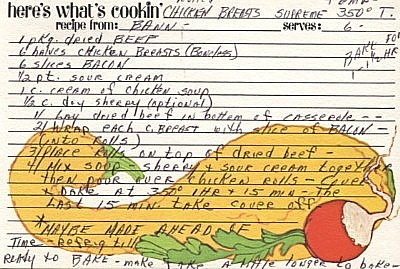 TEMP -
here's what's cookin' CHICKEN BREASTS SUPREME 350° T.
recipe from: BANN - serves: 6 -
1 pkg. dried BEEF FOR
6 halves CHICKEN BREASTS (Boneless) BAKE 1 1/2 HR
6 slices BACON
1/2 pt. sour cream
1 c. cream of chicken soup
1/2 c. dry sherry (optional)
1/ Lay dried beef in bottom of casserole --
2/ Wrap each c. BREAST with slice of BACON -
(into Rolls)
3/ Place rolls on top of dried beef -
4/ Mix soup, sherry & sour cream together
then pour over chicken rolls - cover
* bake at 350° 1 HR & 15 min - The
LAST 15 min. take cover off
* MAYBE MADE AHEAD OF
Time - Refrig till
READY to BAKE - make take A little longer to bake -